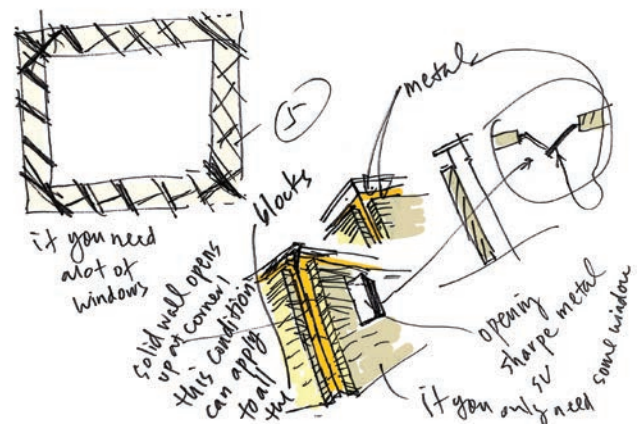 metal
5
if you need
alot of
windows
blocks
solid wall opens
up at corner!
this condition
can apply
to all
the
opening
sharpe metal
if you only need some window